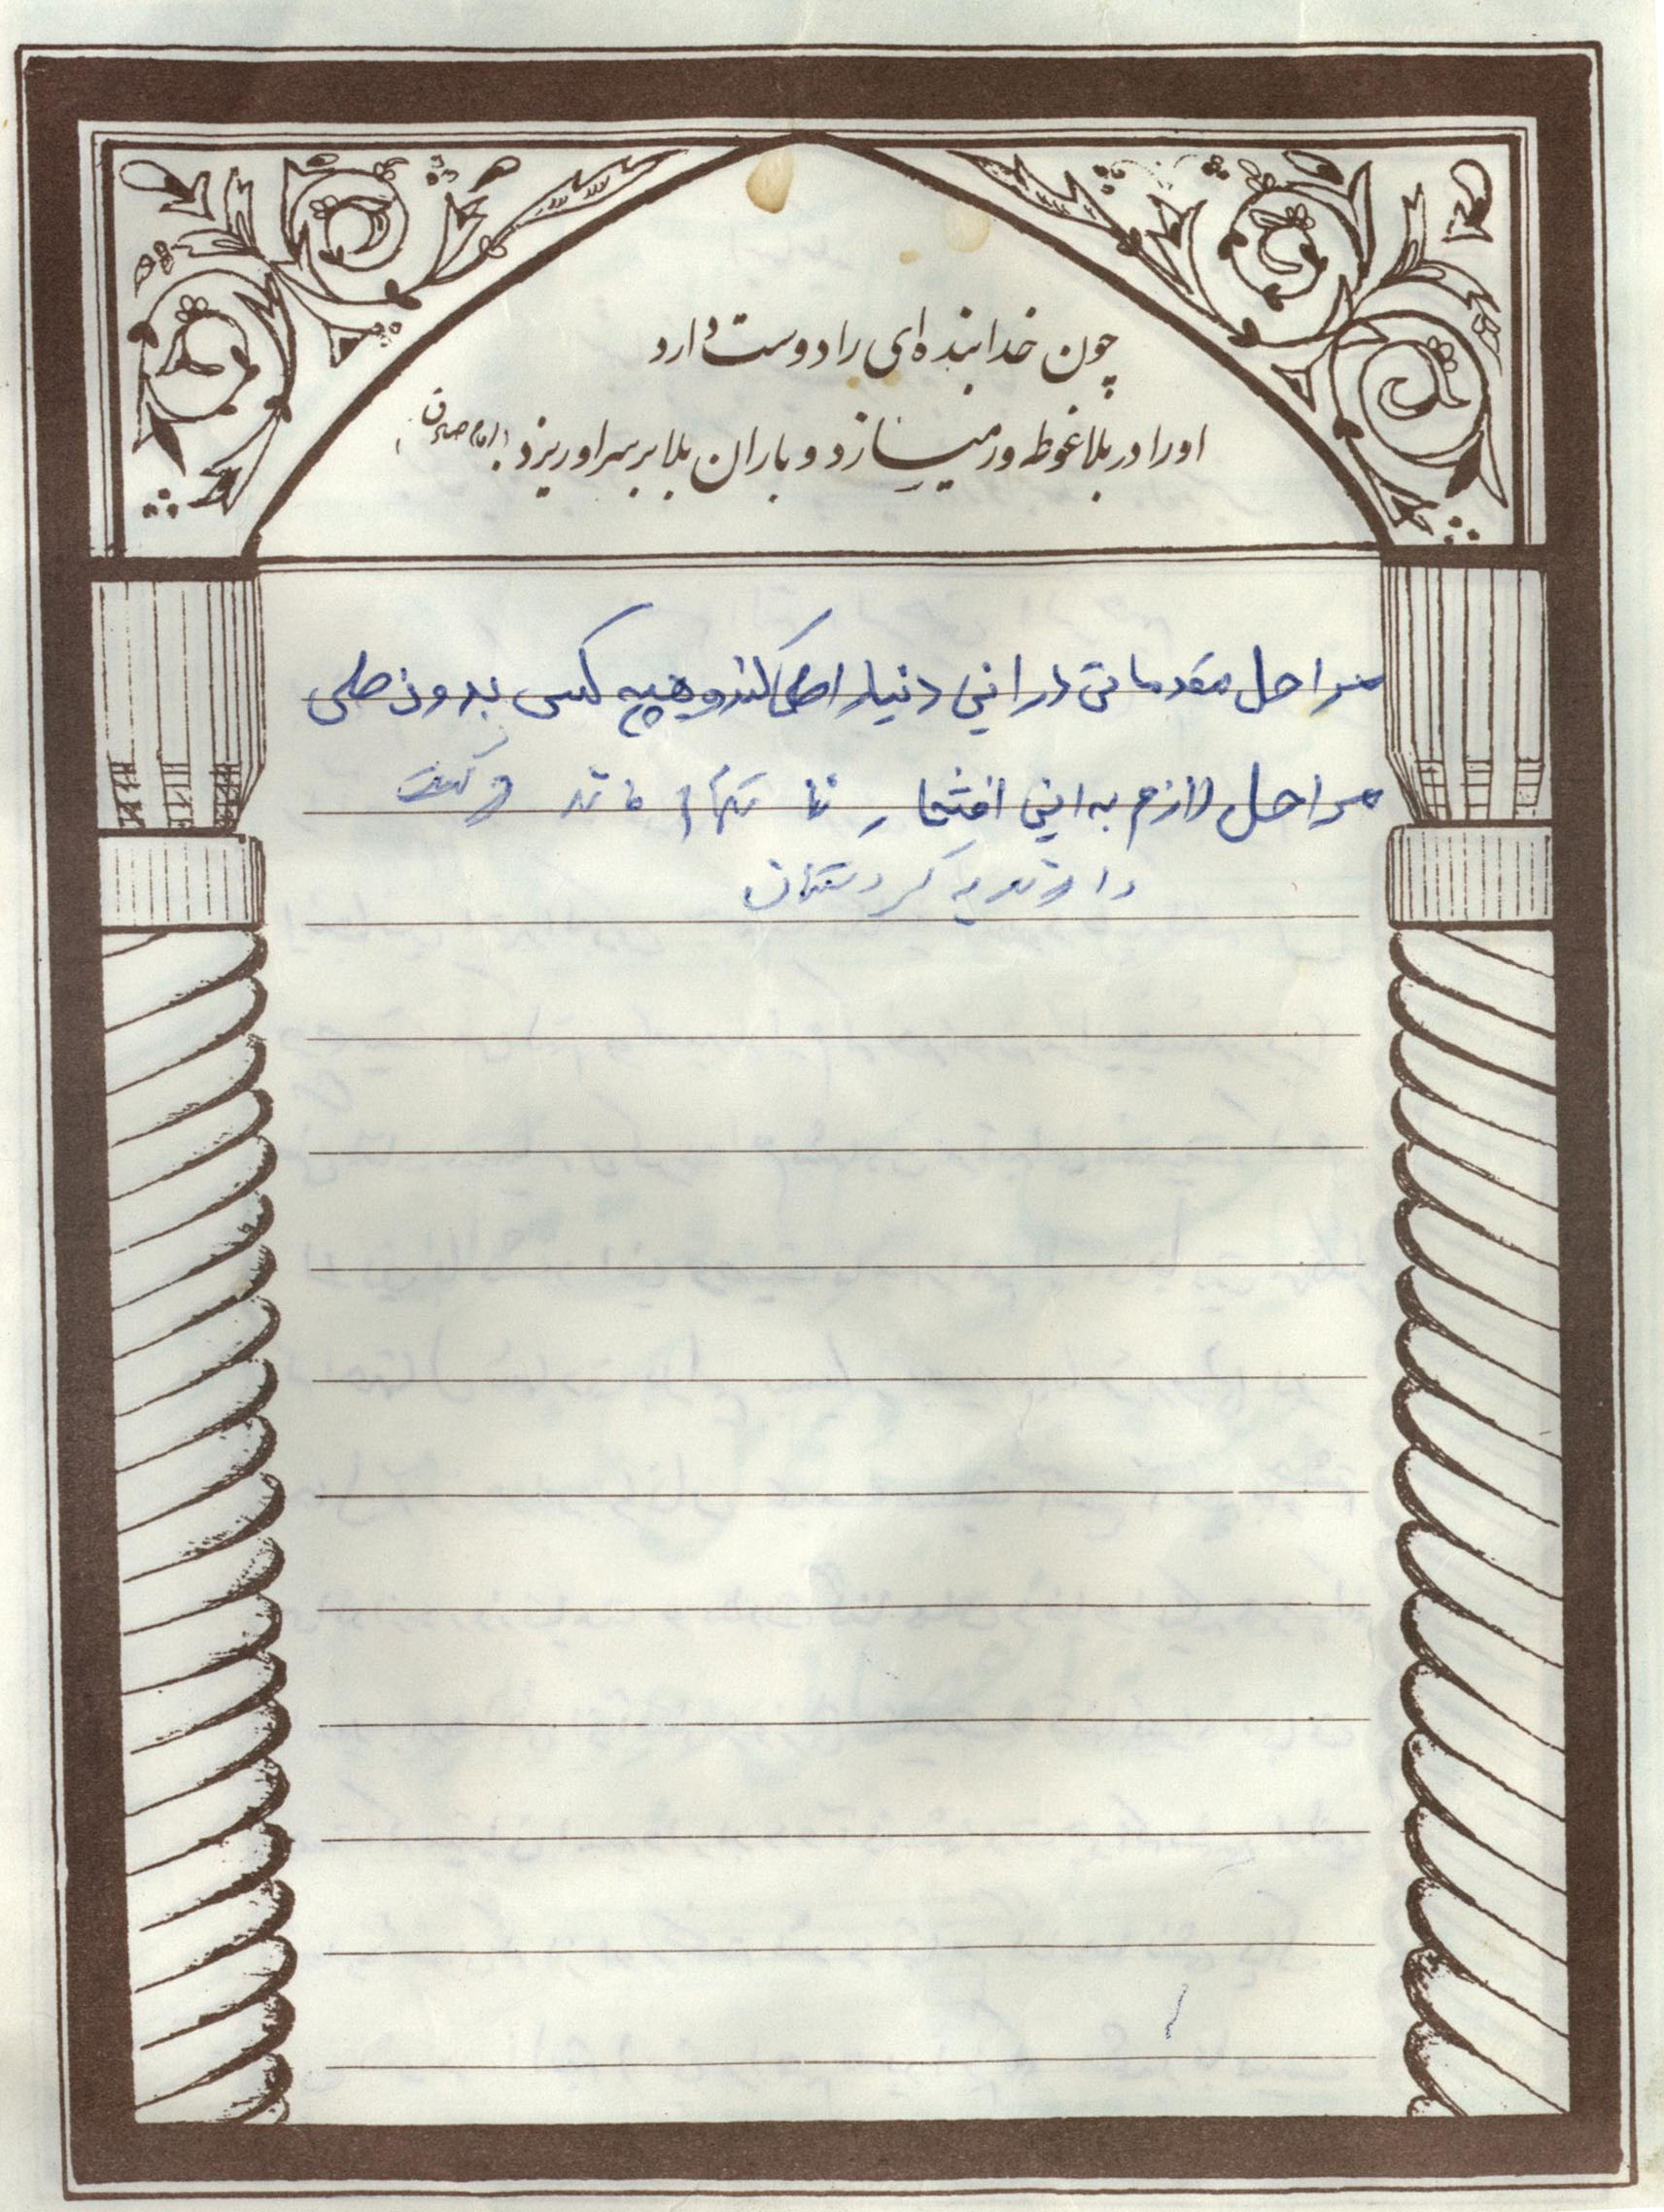 چون خدا بنده‌ای را دوست دارد
او را در بلا غوطه‌ور میسازد و باران بلا بر سر او ریزد. (امام صادق)
مراحل مقدماتی در این دنیا را طی کنند و هیچ کسی بدون طی
مراحل لازم به این افتخار
به کردستان